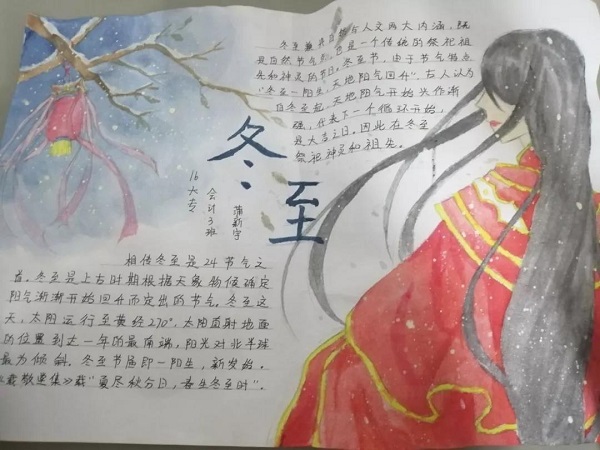 冬至兼具自然与人文两大内涵，既
是自然节气点，也是一个传统的祭祀祖
先和神灵的节日。冬至节，由于节气特点
"冬至一阳生，天地阳气回升"。古人认为
自冬至起，天地阳气开始兴作渐
强，代表下一个循环开始，
是大吉之日。因此在冬至
祭祀神灵和祖先。
冬至
16大专
会计3班
蒲新宇
相传冬至是24节气之
首。冬至是上古时期根据天象物候确定
阳气渐渐开始回升而定出的节气。冬至这
天，太阳运行至黄经270°，太阳直射地面
的位置到达一年的最南端，阳光对北半球
最为倾斜。冬至节届即一阳生，新发始。
集》载"夏尽秋分日，春生冬至时"。